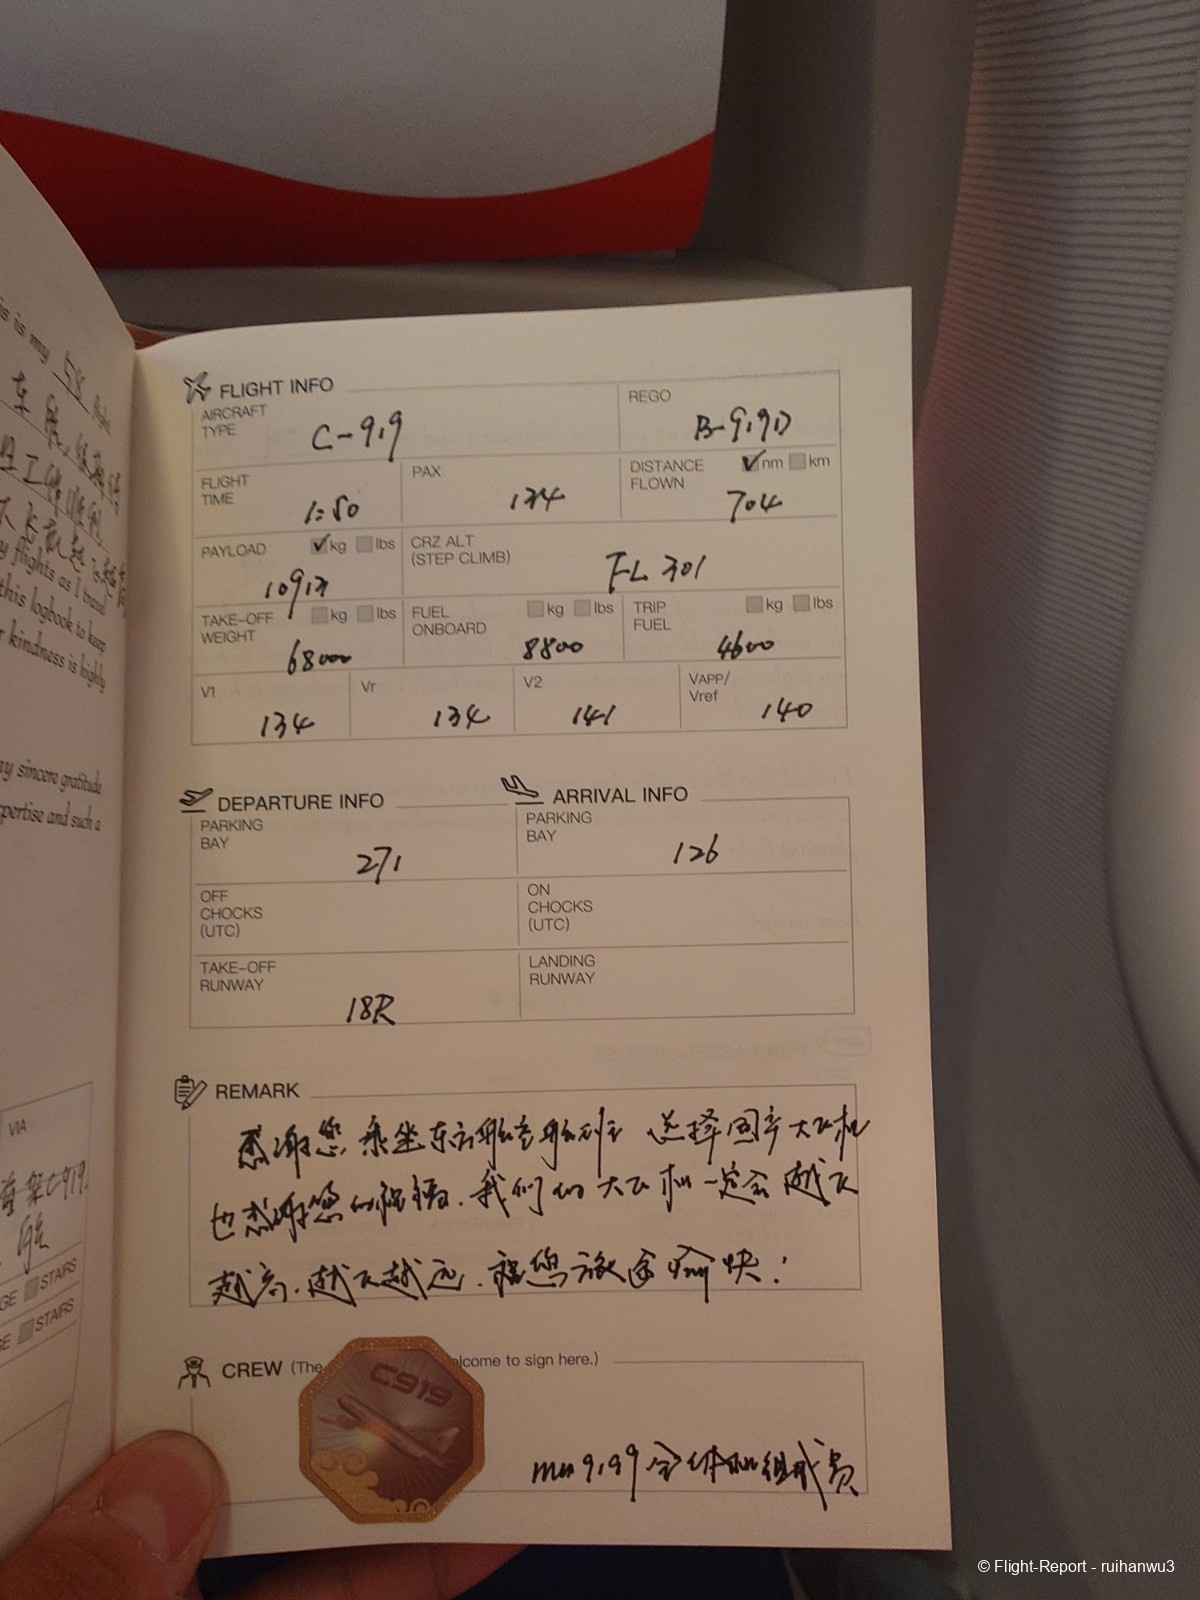 is is my 58 flight
y flights as I travel
this logbook to keep
r kindness is highly
my sincere gratitude
pertise and such a
VIA
C919.
GE STAIRS
GE STAIRS
FLIGHT INFO
AIRCRAFT TYPE C-919
REGO B-919D
FLIGHT TIME 1:50
PAX 134
DISTANCE FLOWN ✓nm km 704
PAYLOAD ✓kg lbs
CRZ ALT (STEP CLIMB) FL 301
TAKE-OFF WEIGHT kg lbs 68000
FUEL ONBOARD kg lbs 8800
TRIP FUEL kg lbs 4600
V1 134
Vr 134
V2 141
VAPP/Vref 140
DEPARTURE INFO
ARRIVAL INFO
PARKING BAY 271
PARKING BAY 126
OFF CHOCKS (UTC)
ON CHOCKS (UTC)
TAKE-OFF RUNWAY 18R
LANDING RUNWAY
REMARK
感谢您乘坐东方航空航班 选择国产大飞机
也感谢您的祝福.我们的大飞机一定会越飞
越高.越飞越远.祝您旅途愉快!
CREW (The lcome to sign here.)
C919
mu9199全体机组成员
© Flight-Report - ruihanwu3